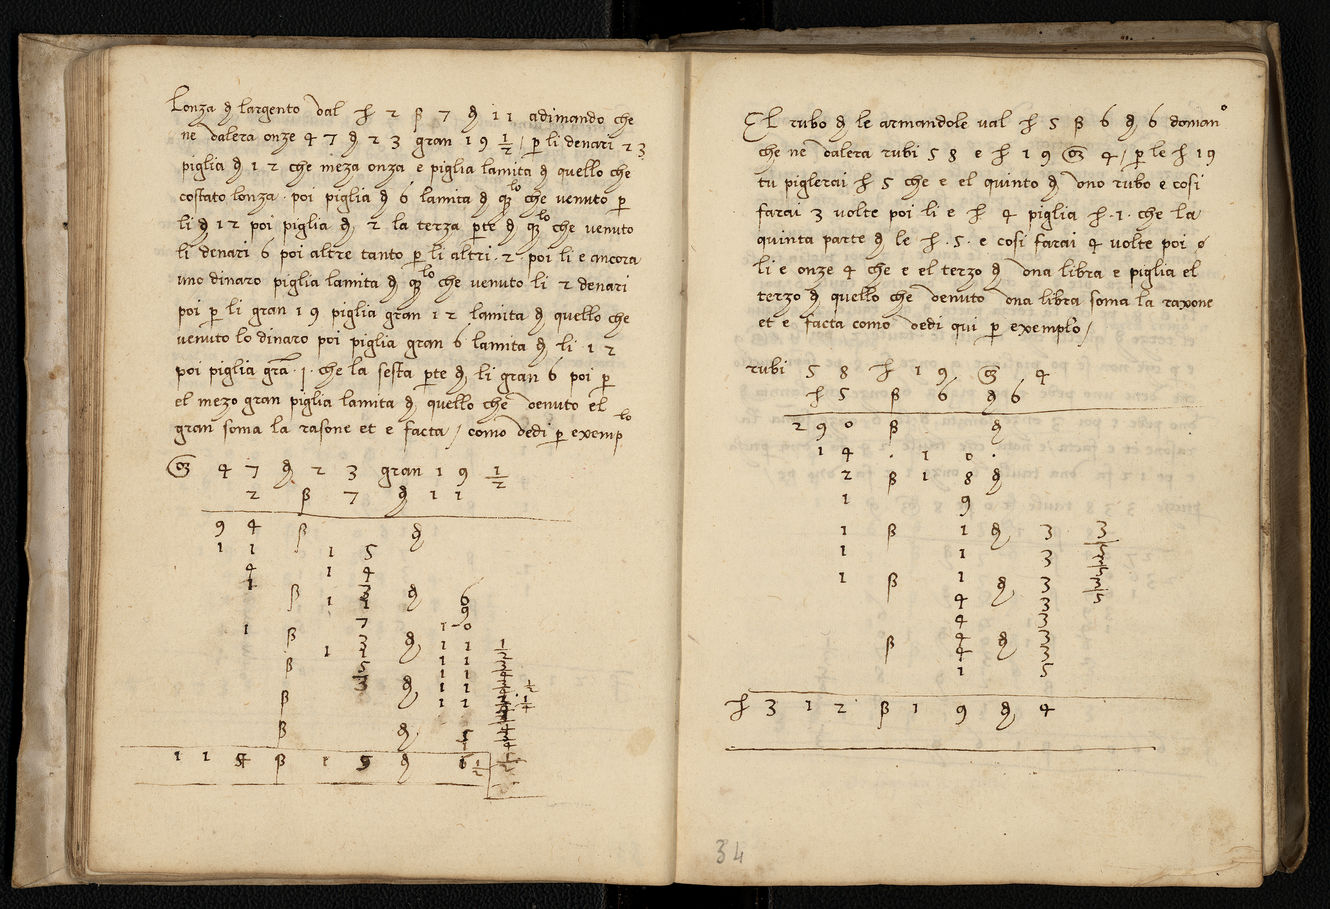 Lonza d largento dal h 2 β 7 d 11 adimando che
ne valera onze 47 d 23 gran 19 1/2 / p li denari 23
piglia d 12 che meza onza e piglia lamita d quello che
costato lonza · poi piglia d 6 lamita d qlo che venuto p
li d 12 poi piglia d 2 la terza pte d qlo che venuto
li denari 6 poi altre tanto p li altri · 2 · poi li e ancora
uno dinaro piglia lamita d qlo che venuto li 2 denari
poi p li gran 19 piglia gran 12 lamita d quello che
venuto lo dinaro poi piglia gran 6 lamita d li 12
poi piglia gra · 1 · che la sesta pte d li gran 6 poi p
el mezo gran piglia lamita d quello che venuto el
gran soma la rasone et e facta / como vedi p exemplo
47 d 23 gran 19 1/2
2 β 7 d 11
94 β d
11 1 5
4 1 4
1
β 1 d 6
9
7 1 0
1 β 3 d 11
1 11
β 5 11
3 d 11
β 11
β d
115 β 1 9 d 6 1/2
El rubo d le armandole val h 5 β 6 d 6 domano
che ne valera rubi 58 e h 19 4 / p le h 19
tu piglerai h 5 che e el quinto d uno rubo e cosi
farai 3 volte poi li e h 4 piglia h · 1 · che la
quinta parte d le h · 5 · e cosi farai 4 volte poi
li e onze 4 che e el terzo d una libra e piglia el
terzo d quello che venuto una libra soma la raxone
et e facta como vedi qui p exemplo /
rubi 58 h 19 4
h 5 β 6 d 6
290 β d
14 · 10 ·
2 β 18 d
1 9
1 β 1 d 3 3
1 1 3
1 β 1 d 3
4 3
4 3
β 4 d 3
4 3
1 5
h 312 β 19 d 4
34